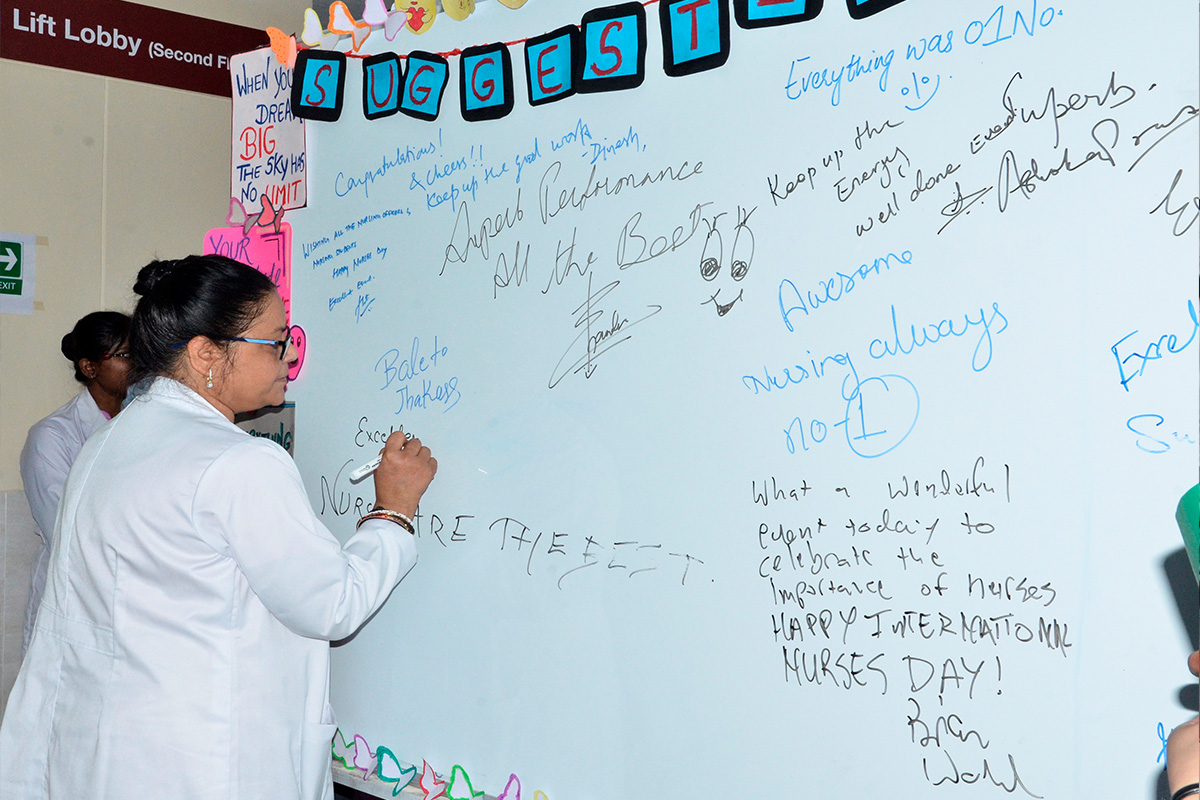 Lift Lobby (Second
WHEN YOU
DREAM
BIG
THE SKY HAS
NO LIMIT
SUGGEST
YOUR
EXIT
Congratulations!
& Cheers!!
Keep up the good work
- Dinesh,
WISHING ALL THE NURSING OFFICERS &
NURSING STUDENTS
HAPPY NURSES DAY
Excellent Event.
Superb Performance
All the Best
Everything was 01No.
Keep up the
Energy
well done
Event Superb.
Awesome
Nursing always
no-1
Excel
Excellen
NURSE ARE THE BEST.
What a wonderful
event today to
celebrate the
importance of nurses
HAPPY INTERNATIONAL
NURSES DAY!
Brian